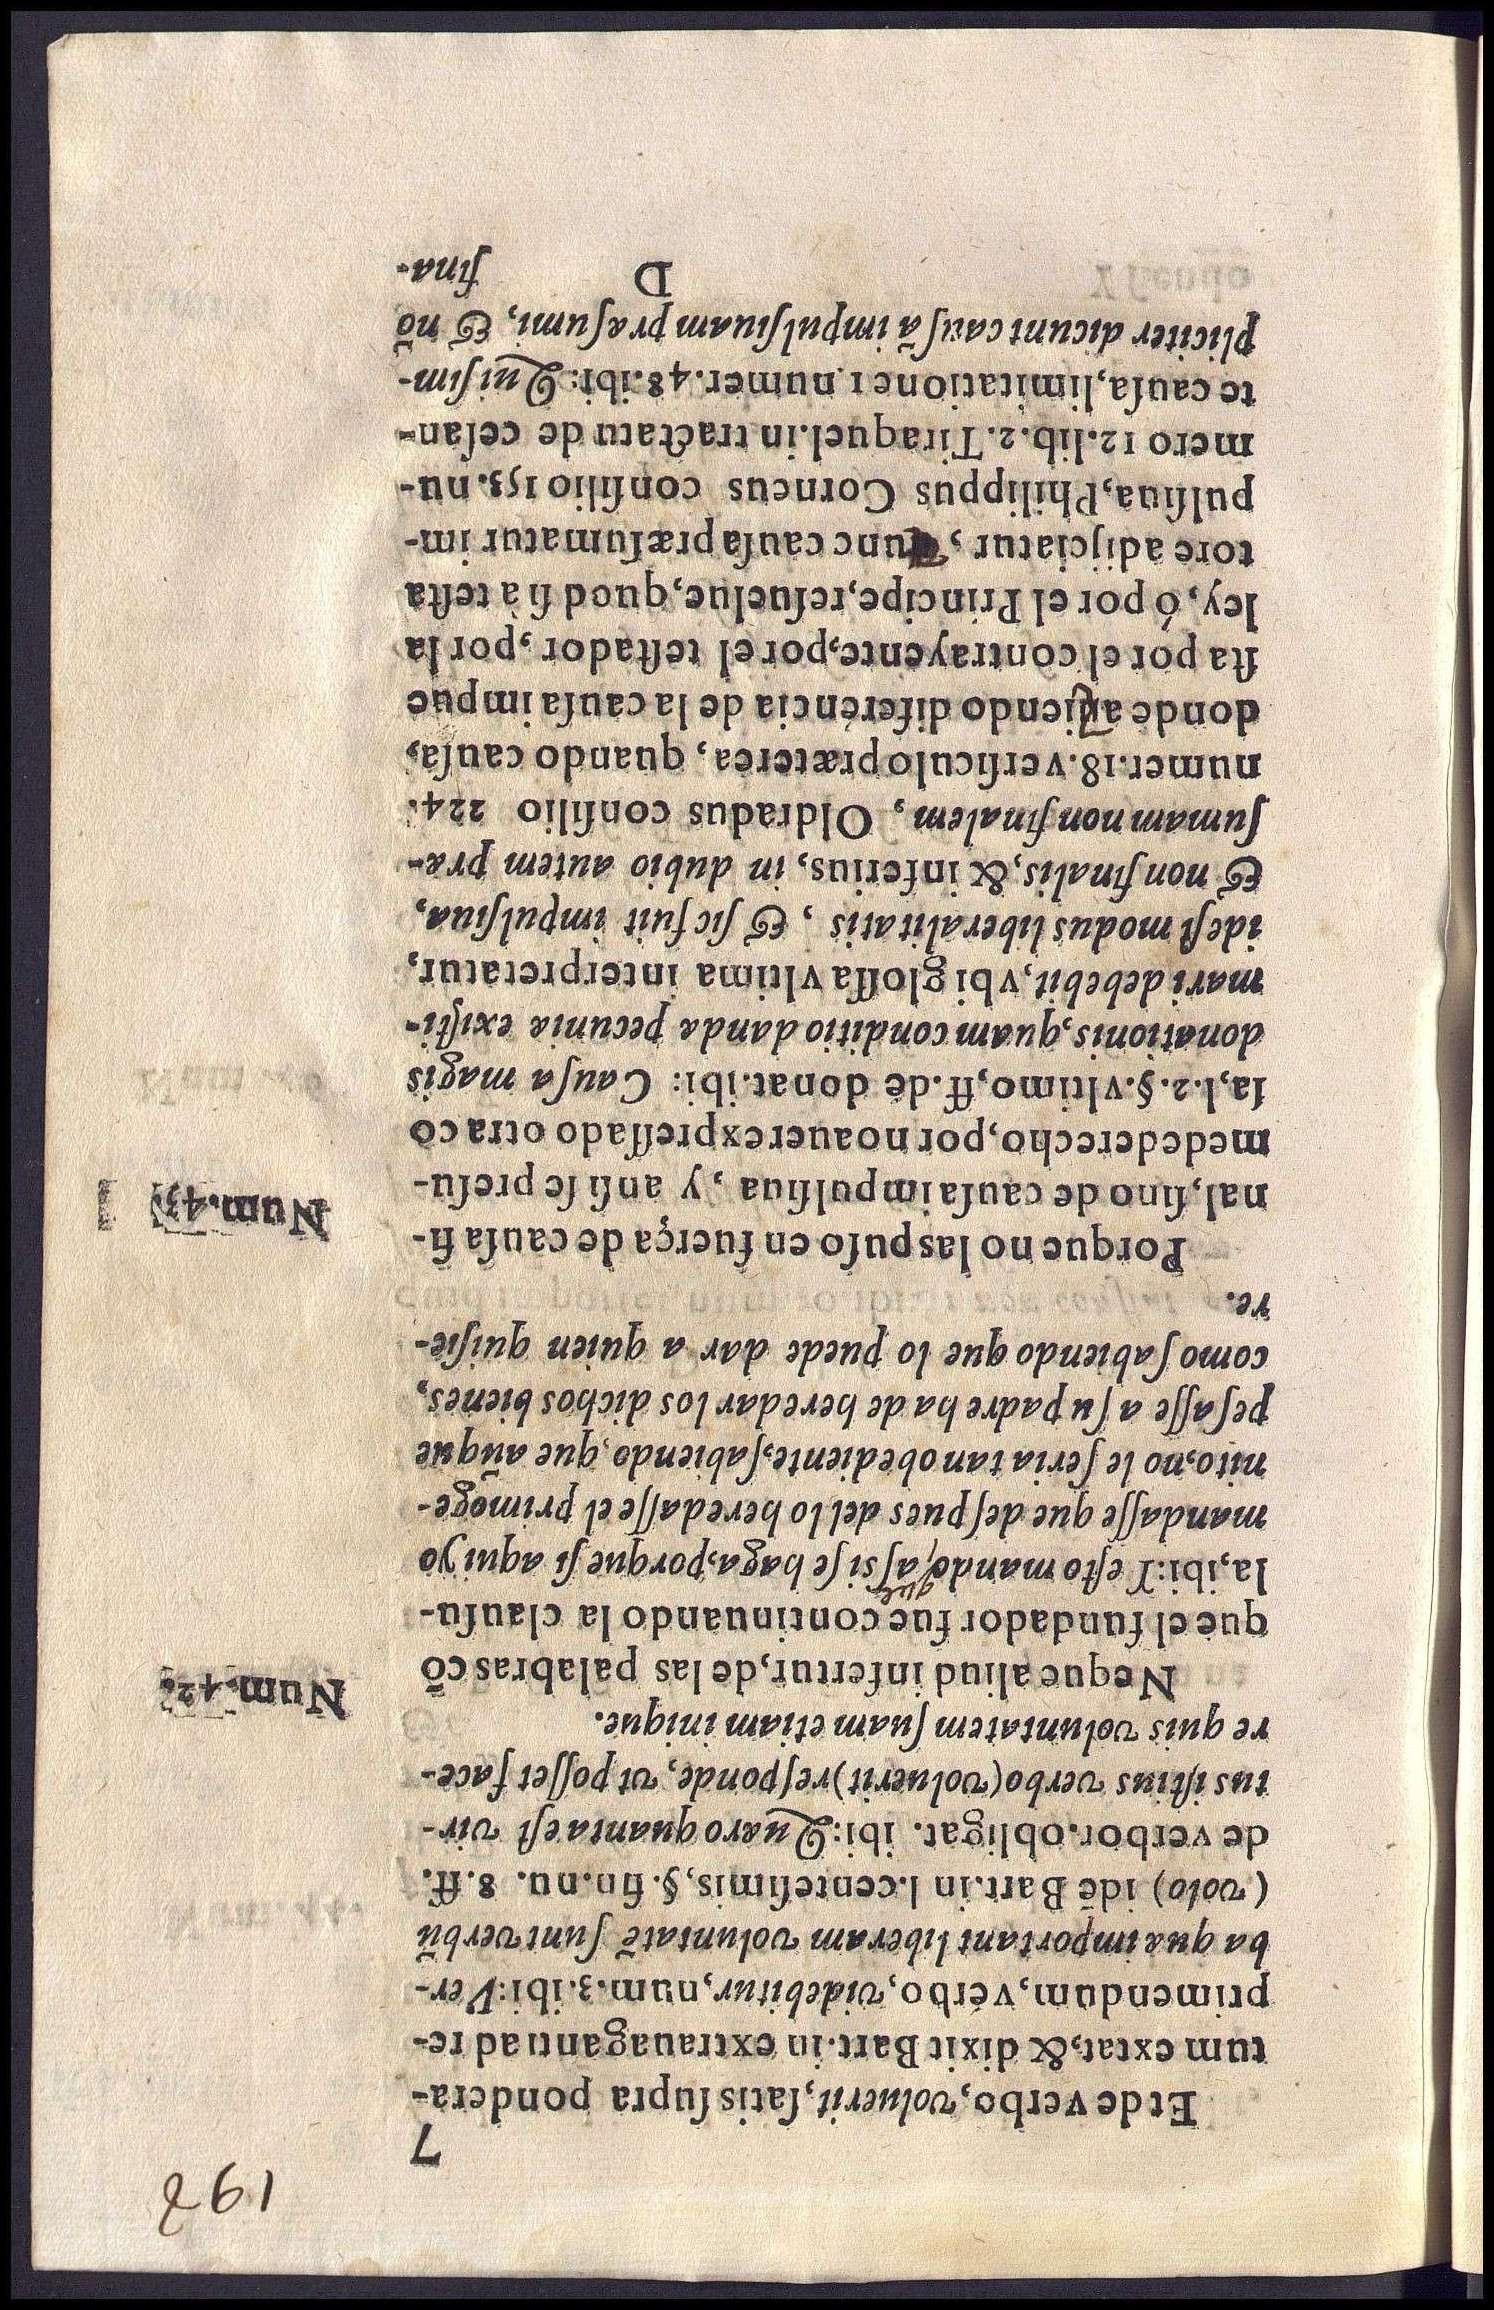 197
7
Et de verbo, voluerit, ſatis ſupra pondera-
tum extat, & dixit Bart. in extrauaganti ad re-
primendum, verbo, videbitur, num. 3. ibi: Ver-
ba quæ important liberam voluntatē ſunt verbū
(volo) idē Bart. in l. centeſimis, §. fin. nu. 8. ff.
de verbor. obligat. ibi: Quæro quanta eſt vir-
tus iſtius verbo (voluerit) reſponde, vt poſſet face-
re quis voluntatem ſuam etiam inique.
Neque aliud infertur, de las palabras cō
Num. 42.
que el fundador fue continuando la clauſu-
la, ibi: Y eſto mando, que aſsi ſe haga, porque ſi aqui yo
mandaſſe que deſpues dello heredaſſe el primoge-
nito, no le ſeria tan obediente, ſabiendo, que aūque
peſaſſe a ſu padre ha de heredar los dichos bienes,
como ſabiendo que lo puede dar a quien quiſie-
re.
Porque no las puſo en fuerça de cauſa fi-
nal, ſino de cauſa impulſiua, y anſi ſe preſu-
Num. 43.
me de derecho, por no auer expreſſado otra co
ſa, l. 2. §. vltimo, ff. de donat. ibi: Cauſa magis
donationis, quam conditio danda pecunia exiſti-
mari debebit, vbi gloſſa vltima interpretatur,
ideſt modus liberalitatis, & ſic fuit impulſiua,
& non finalis, & inferius, in dubio autem præ-
ſumam non finalem, Oldradus conſilio 224.
numer. 18. verſiculo præterea, quando cauſa,
donde aziendo diferēncia de la cauſa impue
ſta por el contrayente, por el teſtador, por la
ley, ó por el Principe, reſuelue, quod ſi à teſta
tore adijciatur, tunc cauſa præſumatur im-
pulſiua, Philippus Corneus conſilio 153. nu-
mero 12. lib. 2. Tiraquel. in tractatu de ceſan-
te cauſa, limitatione 1. numer. 48. ibi: Qui ſim-
pliciter dicunt cauſā impulſiuam præſumi, & nō
D
fina-